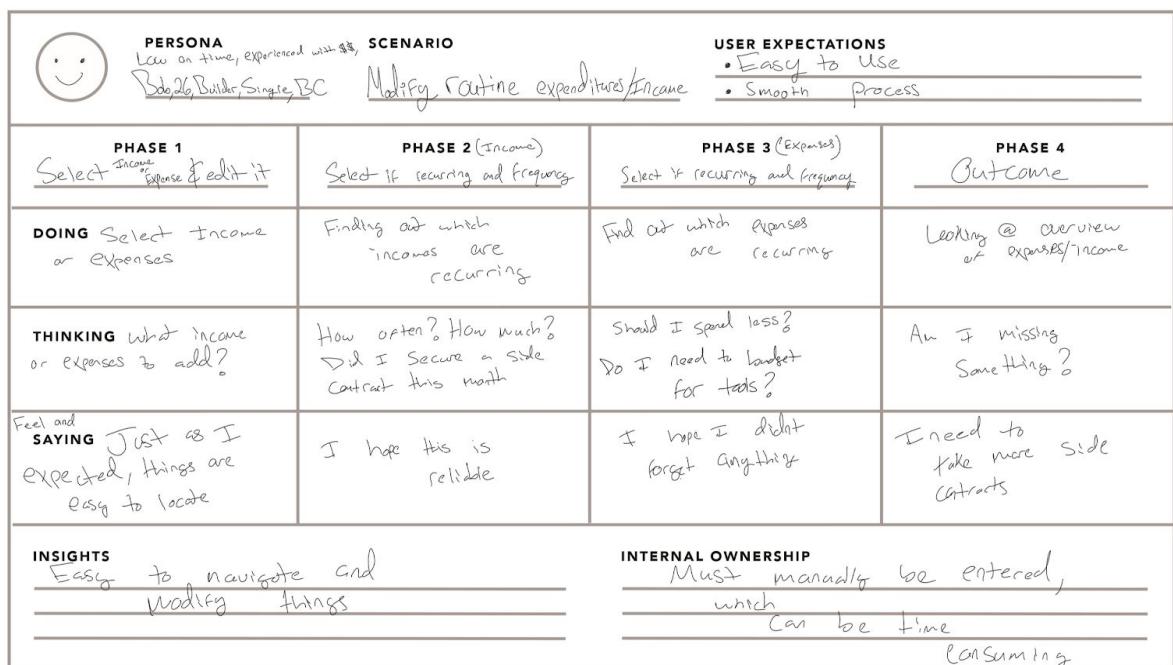 PERSONA
Low on time, experienced with $$,
Bob, 26, Builder, Single, BC
SCENARIO
Modify routine expenditures/Income
USER EXPECTATIONS
• Easy to Use
• Smooth Process
PHASE 1
Select Income or Expense & edit it
PHASE 2 (Income)
Select if recurring and frequency
PHASE 3 (Expenses)
Select if recurring and frequency
PHASE 4
Outcome
DOING Select Income
or expenses
Finding out which
incomes are
recurring
Find out which expenses
are recurring
Looking @ overview
of expenses/income
THINKING what income
or expenses to add?
How often? How much?
Did I Secure a side
contract this month
Should I spend less?
Do I need to budget
for tools?
Am I missing
Something?
Feel and
SAYING Just as I
expected, things are
easy to locate
I hope this is
reliable
I hope I didnt
forget anything
I need to
take more side
contracts
INSIGHTS
Easy to navigate and
modify things
INTERNAL OWNERSHIP
Must manually be entered,
which
Can be time
Consuming